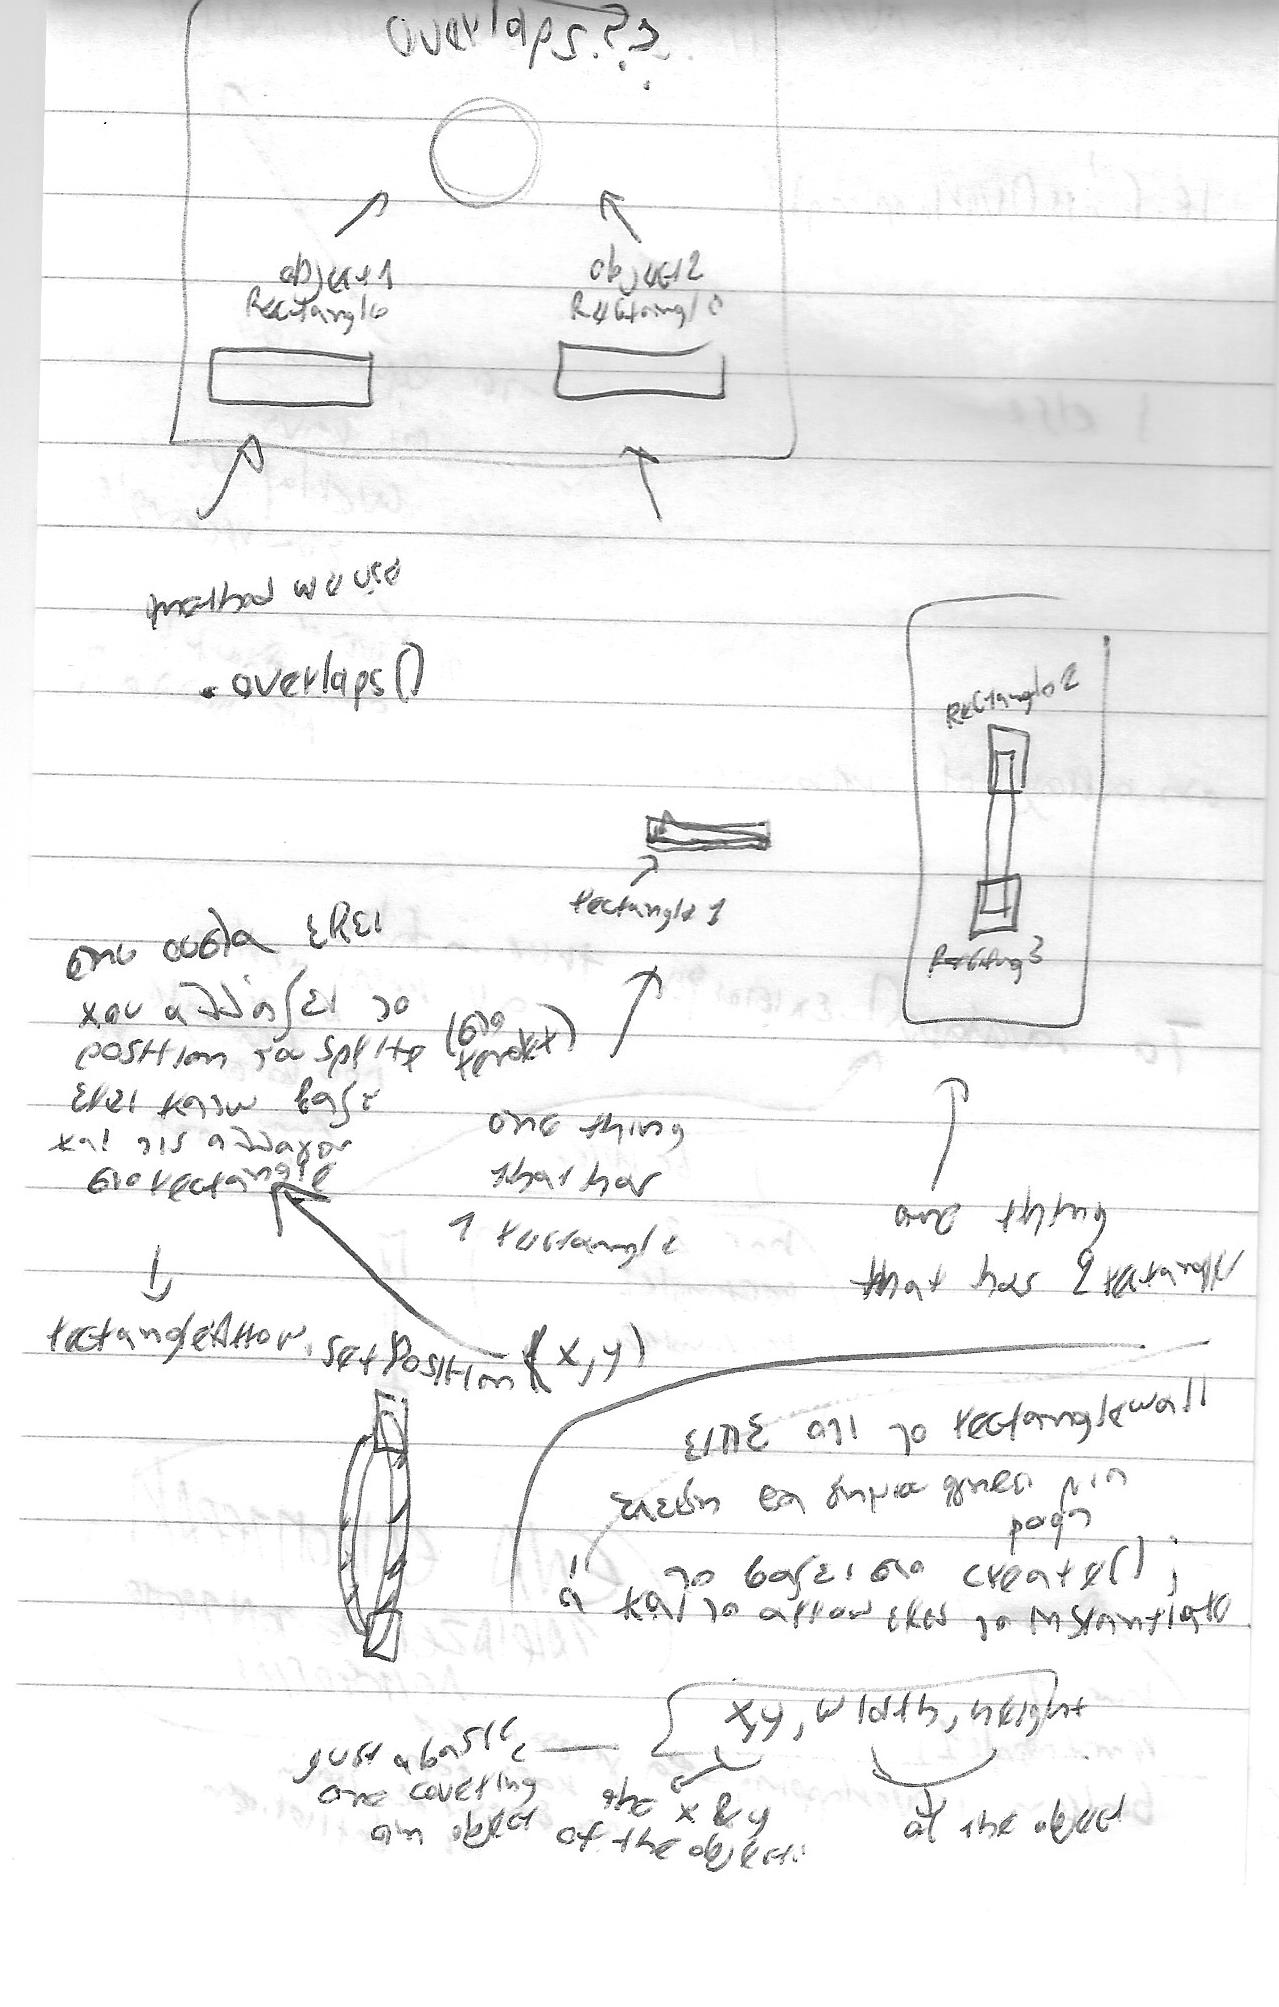 overlaps??
object1
Rectangle
object2
Rectangle
method we use
.overlaps()
Rectangle2
rectangle1
Rectang3
στην ουσία εκεί
που αλλάζει το
position το sprite (στο
render)
εκεί κατω βαζε
και τις αλλαγες
στο rectangle
one thing
that has
1 rectangle
one thing
that has 2 rectangles
rectangleArrow.setPosition(x,y)
ΕΙΠΕ οτι το rectanglewall
επειδη θα δημιουργησει μια
φορα
το βαζει στο create();
και το arrow εκει το instantiate
x,y, width, height
just a basic
one covering
an object
the x & y
of the object
of the object